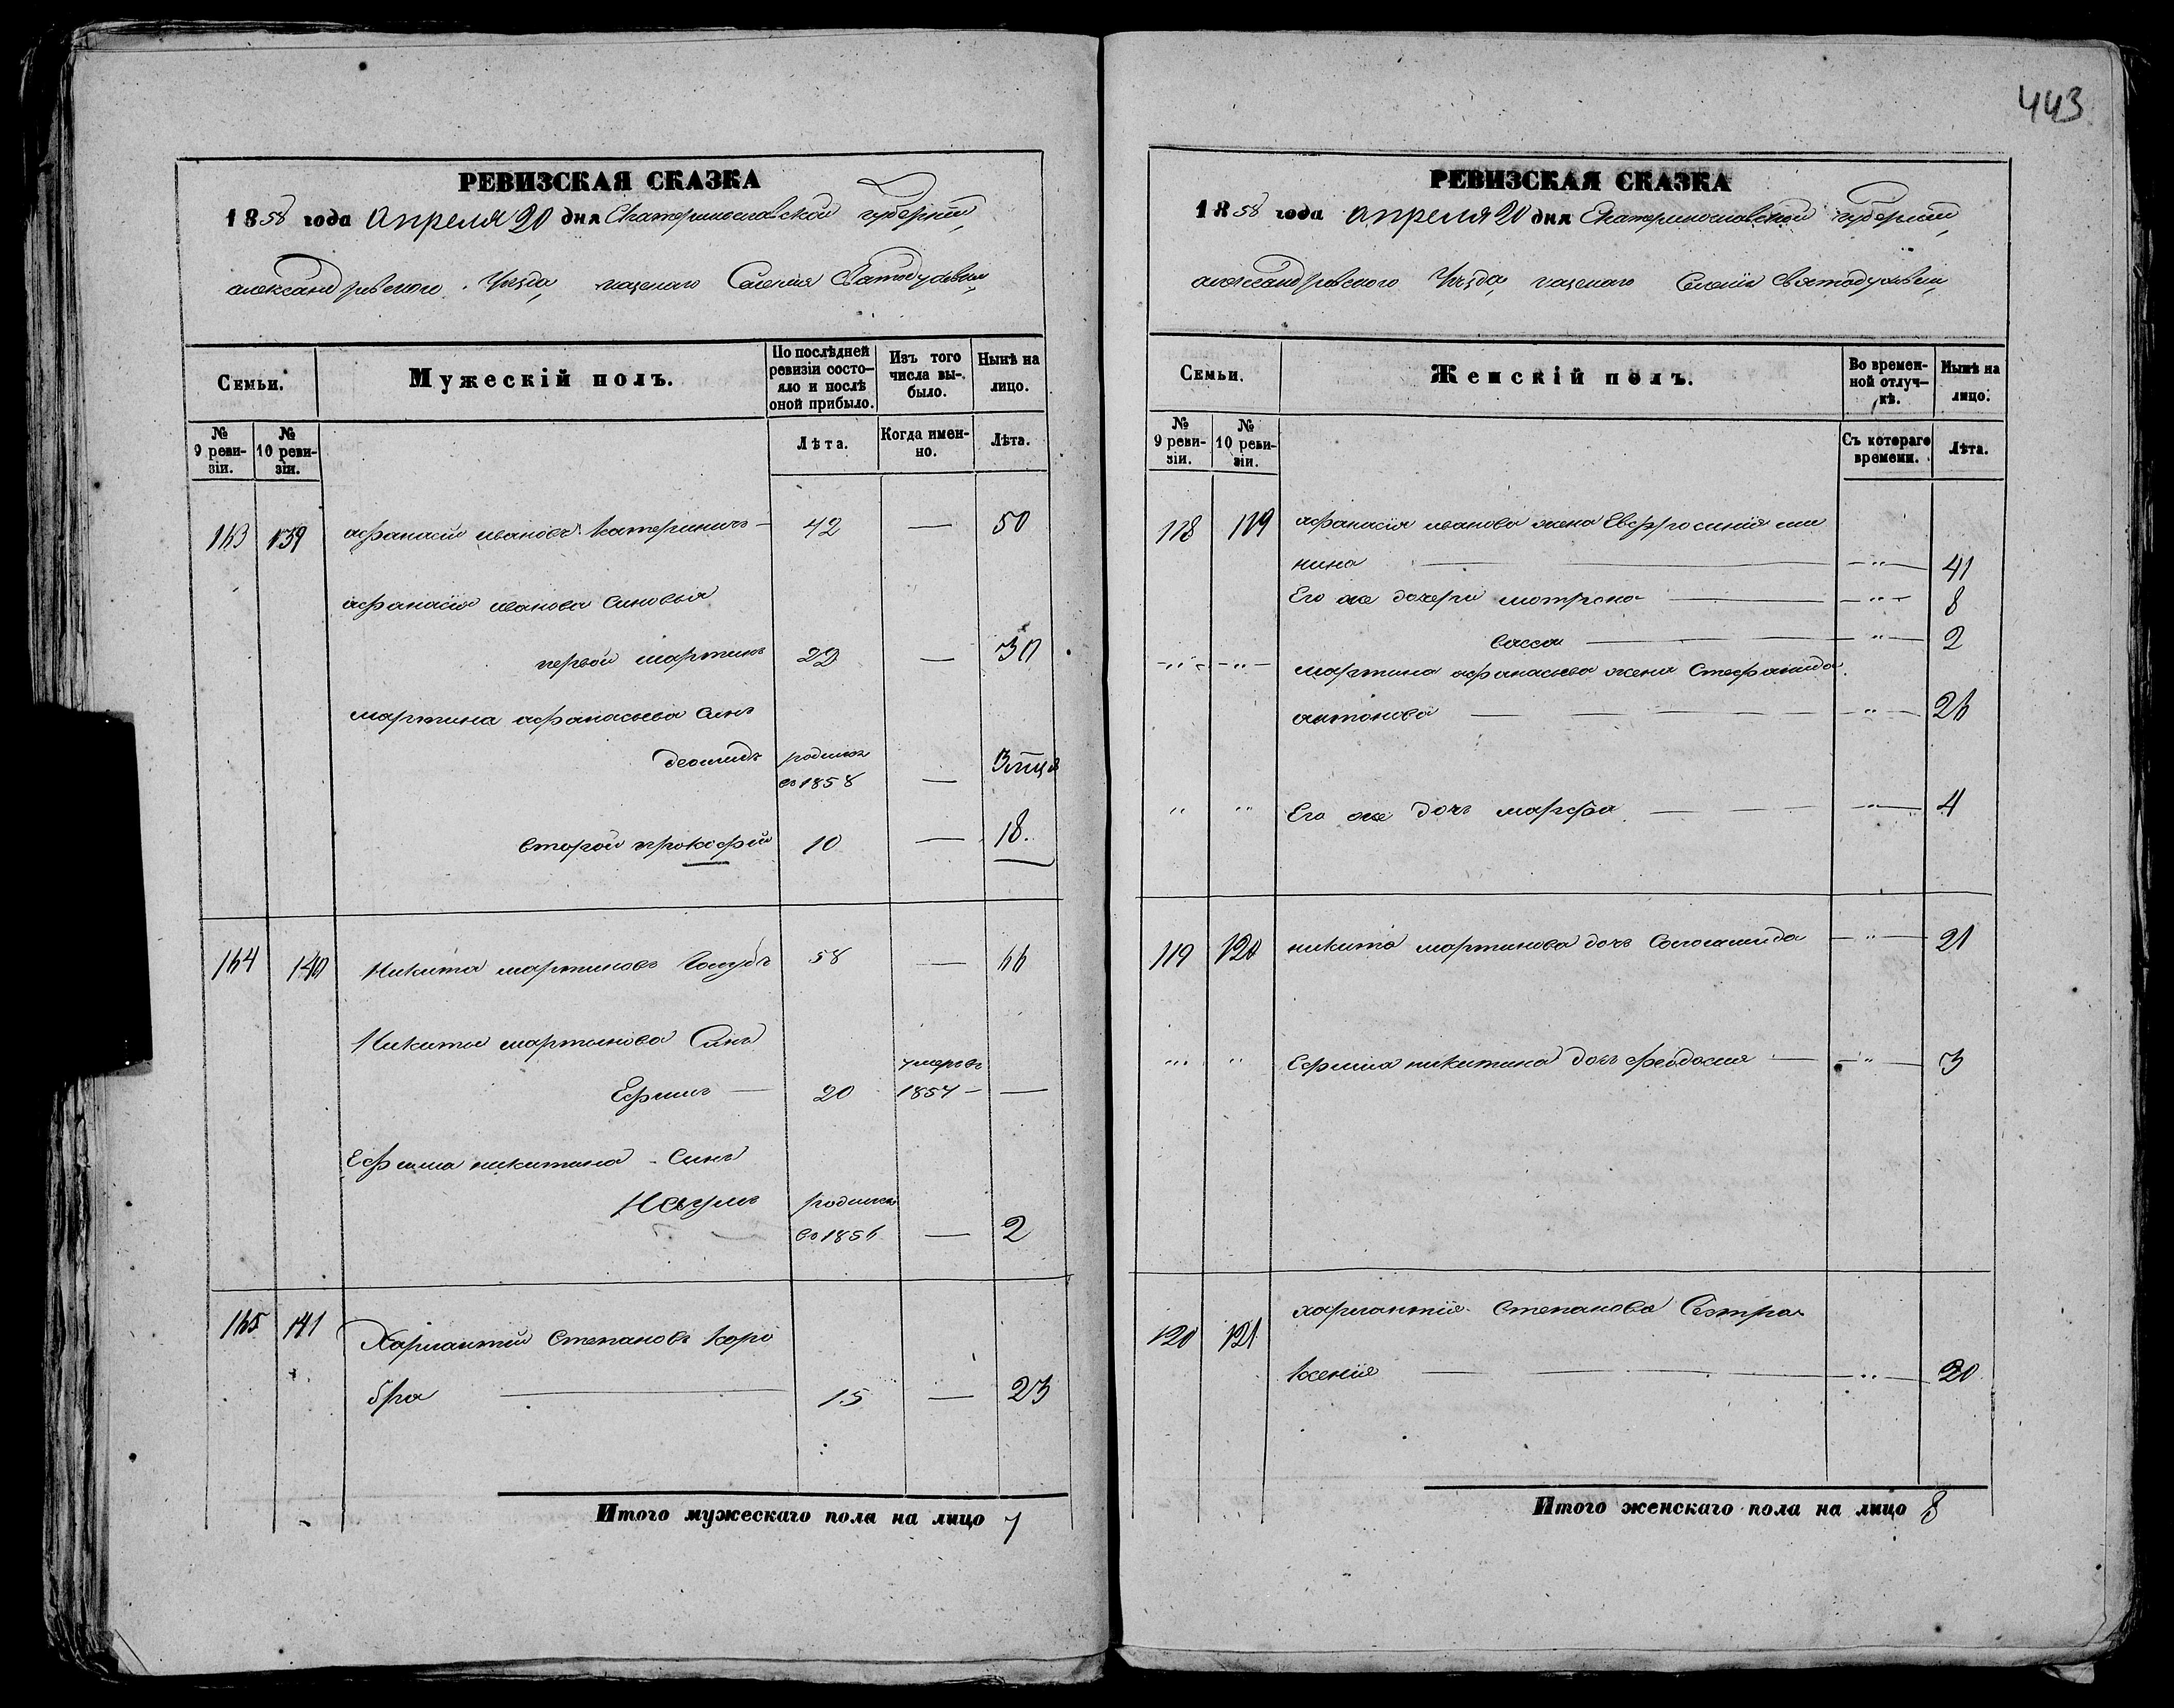 443
РЕВИЗСКАЯ СКАЗКА
1858 года апреля 20 дня Екатеринославской губернии,
александровского Уезда, казенаго Селения Святодуховки,
Семьи.
Мужескій полъ.
По послѣдней ревизіи состояло и послѣ оной прибыло.
Изъ того числа выбыло.
Нынѣ на лицо.
№ 9 ревизіи.
№ 10 ревизіи.
Лѣта.
Когда именно.
Лѣта.
163 139 афанасий ивановъ Катериничъ — 42 — 50
афанасия иванова Сыновья
первой мартинъ 22 — 30
мартина афанасьева Синъ
деомидъ родился
во 1858 —
второй прокофий 10 — 18.
164 140 Никита мартиновъ Голубъ 58 — 66
Никиты мартынова Синъ
умеръ въ
Ефимъ — 20 1854 — —
Ефима никитина Синъ
Наумъ родился
во 1856 — 2
165 141 Харлантий Степановъ Коро
бка — 15 — 23
Итого мужескаго пола на лицо 7
РЕВИЗСКАЯ СКАЗКА
1858 года апреля 20 дня Екатеринославской губернии,
александровского Уезда, казенаго Селения Святодуховки,
Семьи.
Женскій полъ.
Во временной отлучкѣ.
Нынѣ на лицо.
№ 9 ревизіи.
№ 10 ревизіи.
Съ котораго времени.
Лѣта.
118 119 афанасия иванова жена Евфросиния ми
нина — — " — 41
Его же дочери мотрона — — " — 8
васса — — " — 2
— " — — " — мартина афанасьева жена Стефанида
антонова — — — " — 26
" " Его же дочь марфа — — " — 4
119 120 никита мартинова дочь Соломанида — " — 21
" " Ефима никитина дочь феодосия — — " — 3
120 121 харлантия Степанова Сестра
Ксения — — " — 20
Итого женскаго пола на лицо 8